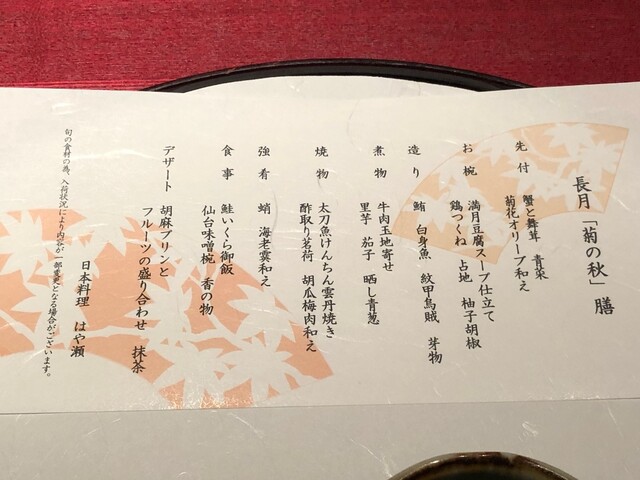 長月「菊の秋」膳
先付 蟹と舞茸 青菜
菊花オリーブ和え
お椀 満月豆腐スープ仕立て
鶏つくね 占地 柚子胡椒
造り 鮪 白身魚 紋甲烏賊 芽物
煮物 牛肉玉地寄せ
里芋 茄子 晒し青葱
焼物 太刀魚けんちん雲丹焼き
酢取り茗荷 胡瓜梅肉和え
強肴 蛸 海老霙和え
食事 鮭いくら御飯
仙台味噌椀 香の物
デザート 胡麻プリンと
フルーツの盛り合わせ 抹茶
日本料理 はや瀬
旬の食材の為、入荷状況により内容が一部変更となる場合がございます。